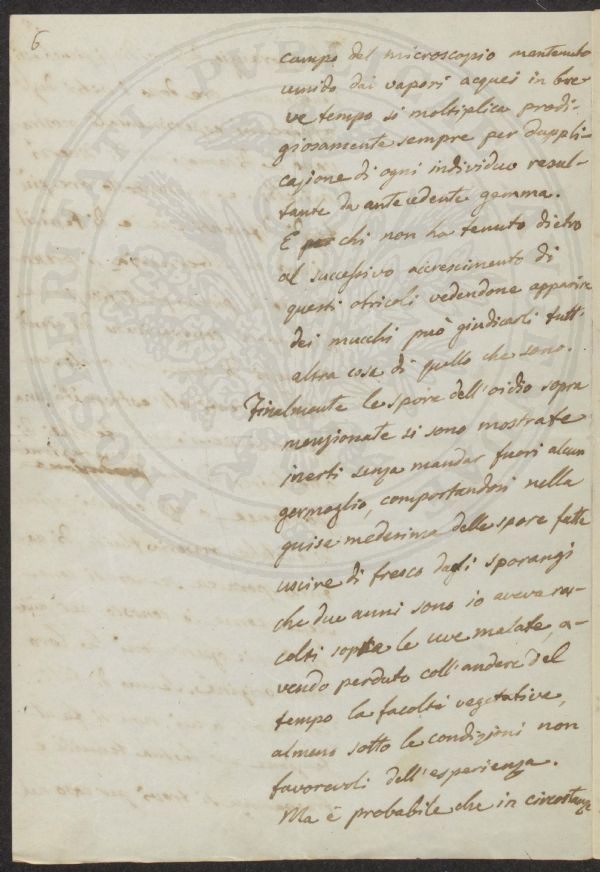 6
campo del microscopio mantenuto
umido dai vapori acquei in bre-
ve tempo si moltiplica prodi-
giosamente sempre per duppli-
cazione di ogni individuo resul-
tante da antecedente gemma.
E chi non ha tenuto dietro
al successivo accrescimento di
questi otricoli vedendone apparire
dei mucchi può giudicarli tutt'
altra cosa di quello che sono.
Finalmente le spore dell'oidio sopra
menzionate si sono mostrate
inerti senza mandar fuori alcun
germoglio, comportandosi nella
guisa medesima delle spore fatte
uscire di fresco dagli sporangi
che due anni sono io aveva rac-
colti sopra le uve malate, a-
vendo perduto coll'andare del
tempo la facoltà vegetative,
almeno sotto le condizioni non
favorevoli dell'esperienza.
Ma è probabile che in circostanze
PROSPERITATI PUBLICAE